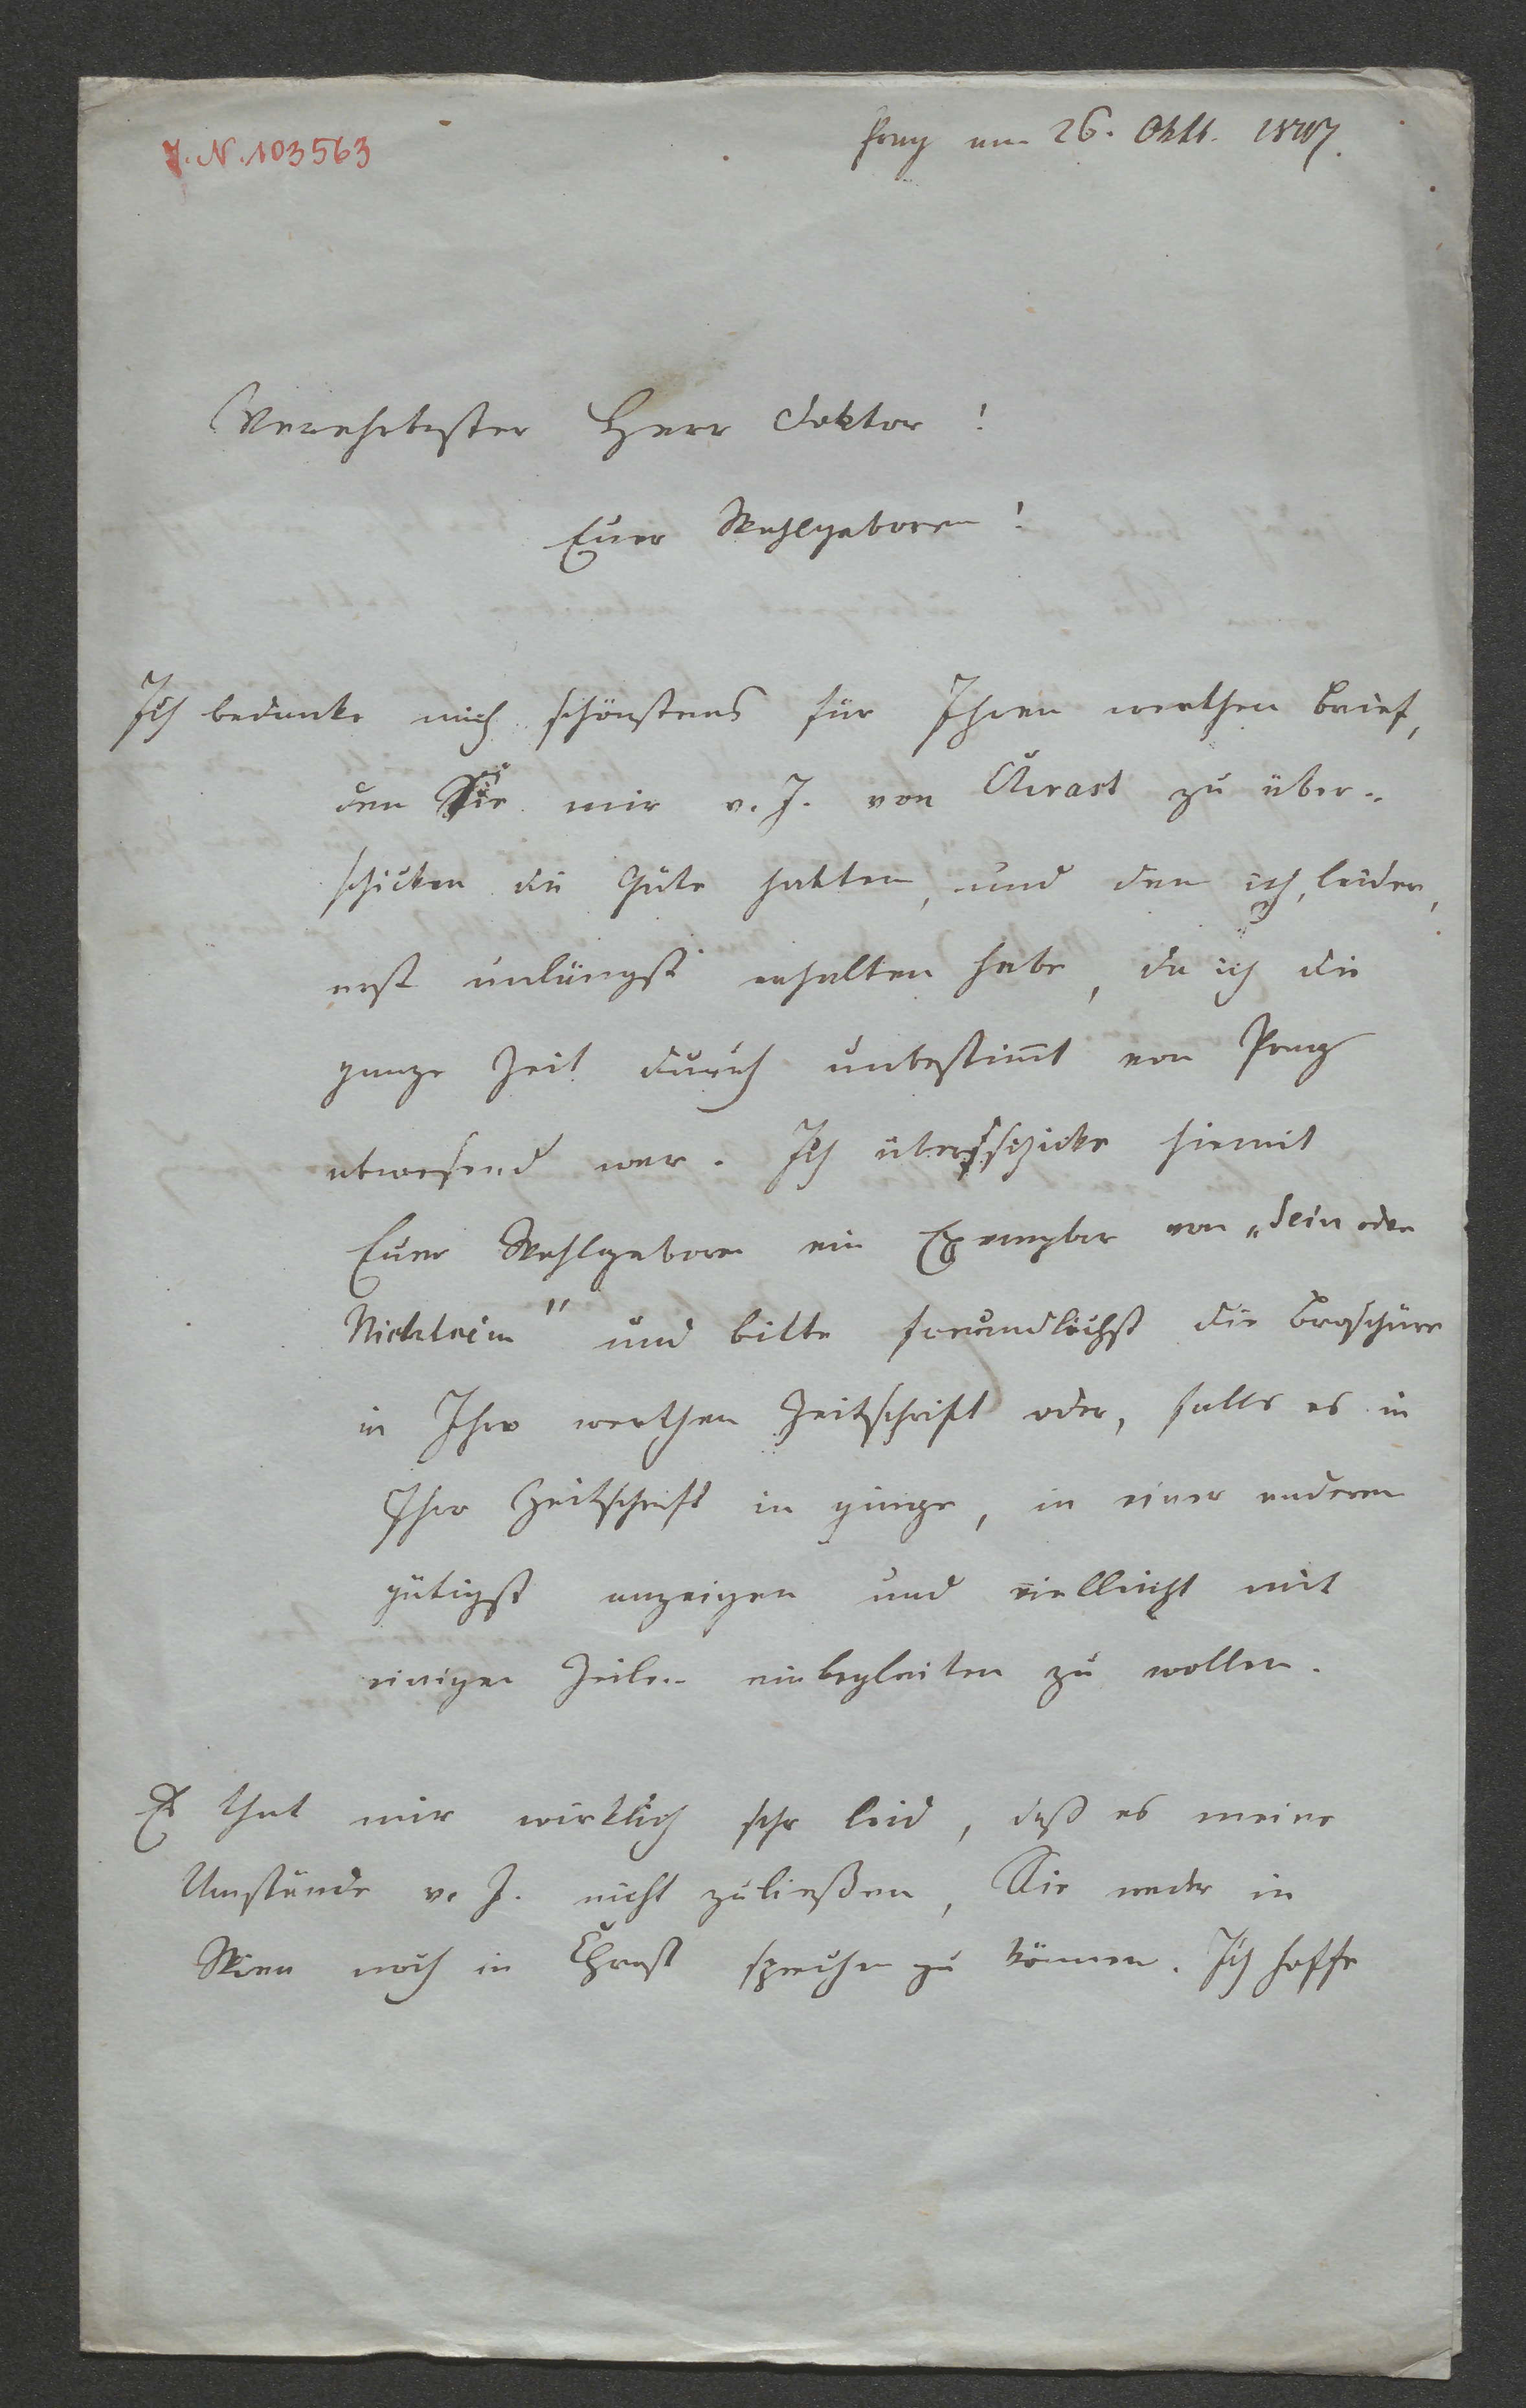 J. N. 103563
Prag am 26. Oktb. 1847.
Verehrtester Herr Doktor!
Euer Wohlgeboren!
Ich bedanke mich schönstens für Ihren werthen Brief,
den Sie mir v. J. von Chrast zu über-
schicken die Güte hatten, und den ich, leider,
erst unlängst erhalten habe, da ich die
ganze Zeit durch unbestimt von Prag
abwesend war. Ich überschicke hiemit
Euer Wohlgeboren ein Exemplar von „Sein oder
Nichtsein" und bitte freundlichst die Broschüre
in Ihre werthen Zeitschrift oder, falls es in
Ihre Zeitschrift in ginge, in einer anderen
gütigst anzeigen und vielleicht mit
einigen Zeilen einbegleiten zu wollen.
Es that mir wirklich sehr leid, daß es meine
Umstände v. J. nicht zuließen, Sie weder in
Wien noch in Chrast sprechen zu können. Ich hoffe